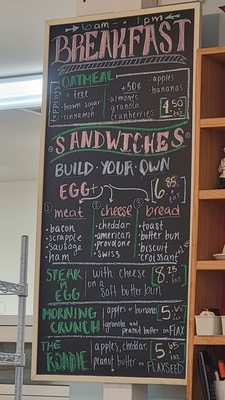 10am - 1pm
BREAKFAST
OATMEAL
toppings
= free +50¢ apples
• brown sugar • almonds • bananas
• cinnamon granola
cranberries 4.50
+ tax
SANDWICHES
BUILD·YOUR·OWN
EGG+ 6.85
+ tax
1 2 3
meat cheese bread
• bacon • cheddar • toast
• scrapple • american • butter bun
• sausage • provolone • biscuit
• ham • swiss • croissant
STEAK with cheese 8.25
n on a
EGG soft butter bun
MORNING apples + bananas
CRUNCH granola and peanut butter on FLAX
THE apples, cheddar,
peanut butter on FLAXSEED